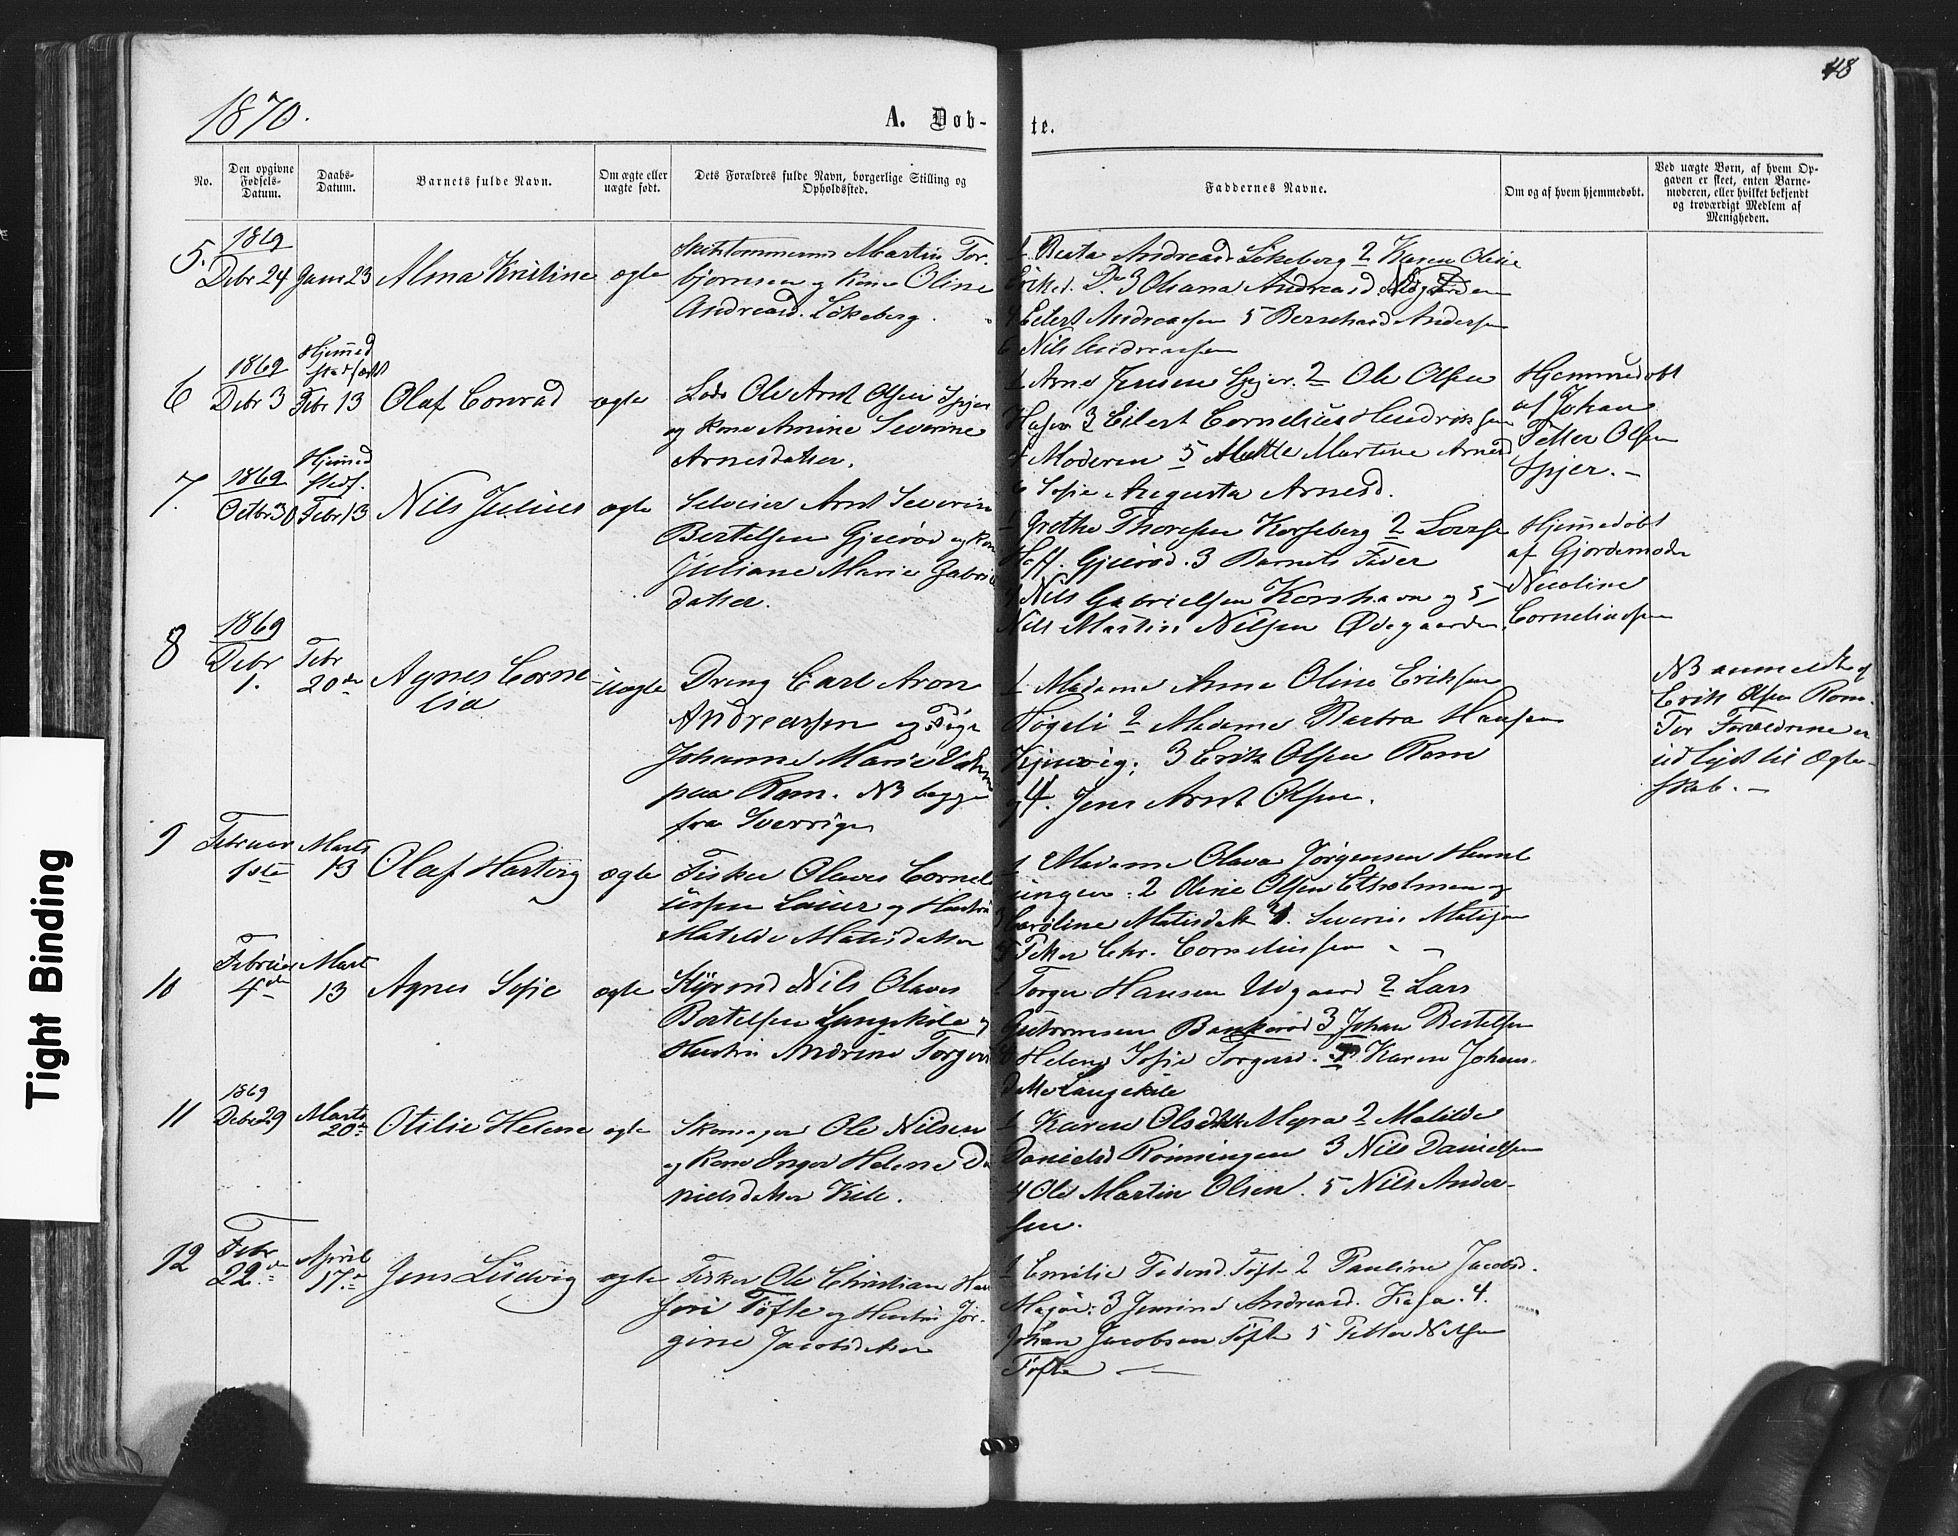 48
1870.
A. Døb-
te.
No.
Den opgivne Fødsels-Datum.
Daabs-Datum.
Barnets fulde Navn.
Om ægte eller uægte født.
Dets Forældres fulde Navn, borgerlige Stilling og Opholdssted.
Faddernes Navne.
Om og af hvem hjemmedøbt.
Ved uægte Børn, af hvem Op-
gaven er skeet, enten Barne-
moderen, eller hvilket bekjendt
og troværdigt Medlem af
Menigheden.
5.
1869
Debr 24
Janr 23
Alma Kristine
ægte
Martin Tor-
bjørnsen og Kone Oline
Andreasd. Lökeberg.
1 Beata Andreasd Lökeberg 2 Karen Olsie
Eriksd. Do 3 Olsana Andreasd
4 Eilert Andreassen 5 Bernhard Andersen
6 Nils Andreassen
6
1869
Debr 3
Hjemed
Febr 13
Olaf Conrad
ægte
Lods Ole Arnt Olsen Spjær
og Kone Amine Severine
Arnesdatter.
1 Arne Jensen Spjær. 2 Ole Olsen
3 Eilert Cornelius Hendriksen
4 Moderen 5 Mette Martine Arnesd
6 Sofie Augusta Arnesd.
Hjemmedøbt
af Johan
Petter Olsen
Spjær. -
7.
1869
Octbr 30
Hjemed
Febr 13
Nils Julius
ægte
Selveier Arnt Severin
Bertelsen Gjierød og Kone
Juliane Marie Gabriels
datter.
1 Grethe Thoresen Korseberg 2 Lovise
Hoff. Gjierød. 3 Barnets Fader
4 Nils Gabrielsen Korshavn og 5
Nils Martin Nilsen Ødegaarden.
Hjemmedøbt
af Gjordemoder
Nicoline
Corneliussen
8
1869
Debr
1.
Febr
20de
Agnes Corne-
lia
uægte
Dreng Carl Aron
Andreassen og Pige
Johanne Marie
paa Ram. NB begge
fra Sverrige
1 Madame Anne Oline Eriksen
Høgeli 2 Madame Barbra Hansen
Kjenvig; 3 Erik Olsen Ram
og 4. Jens Arnt Olsen.
NB anmeldt af
Erik Olsen Ram.
For Forældrene er
udlyst til Ægte-
skab. -
9
Februar
1ste
Marts
13
Olaf Hartvig
ægte
Fisker Olaves Cornel-
iusen Lauer og Hustru
Matilde Matisdatter
1 Madame Olava Jørgensen
ungen. 2 Oline Olsen Etholmen og
3 Caroline Matisdatt 4. Severin Matisen
5 Petter Chr. Corneliussen - -
10
Februar
4de
Mart
13
Agnes Sofie
ægte
Styrmd Nils Olaves
Bertelsen Langekile og
Hustru Andrine Torgersd
1 Torger Hansen Udgaard 2 Lars
Guttormsen Bankerød 3 Johan Bertelsen
4 Helene Sofie Torgersd. 5 Karen Johans-
datter Langekile
11
1869
Debr 29
Marts
20de
Otilie Helene
ægte
Skomager Ole Nilsen
og Kone Inger Helene Da-
nielsdatter Kile.
1 Karen Olsdatt Myra 2 Matilde
Danielsd Rønningen 3 Nils Danielsen
4 Ole Martin Olsen. 5 Nils Ander-
sen.
12
Febr
22de
April
17de
Jens Ludvig
ægte
Fisker Ole Christian Han-
sen Tøfte og Hustru Jør-
gine Jacobsdatter
1 Emilie Tøfte 2 Pauline Jacobsd.
Magøe. 3 Jensine Andreasd. Kasa. 4.
Johan Jacobsen Tøfte 5 Petter Nilsen
Tøfte -
Tight Binding